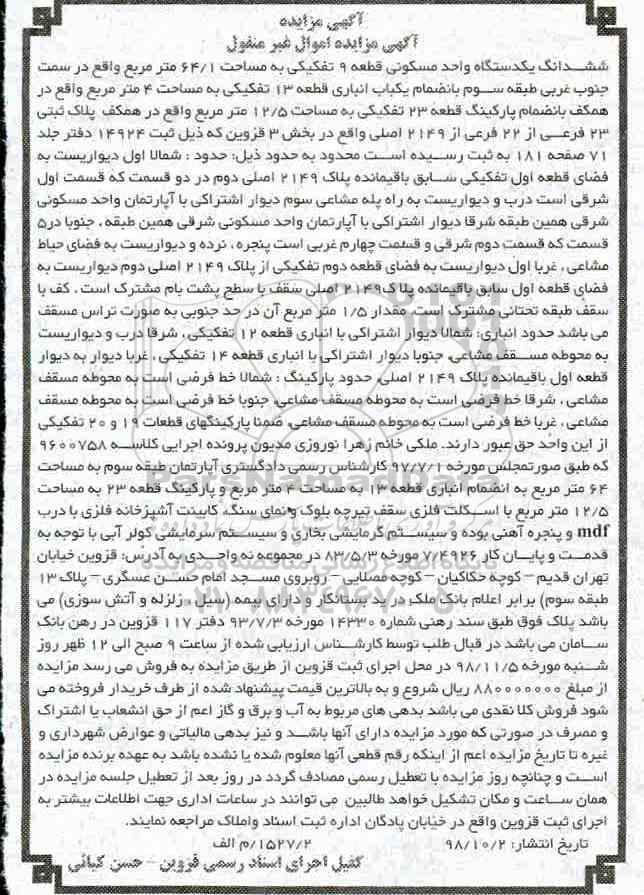 آگهی مزایده
آگهی مزایده اموال غیر منقول
ششدانگ یکدستگاه واحد مسکونی قطعه ۹ تفکیکی به مساحت ۶۴/۱ متر مربع واقع در سمت
جنوب غربی طبقه سوم بانضمام یکباب انباری قطعه ۱۳ تفکیکی به مساحت ۴ متر مربع واقع در
همکف بانضمام پارکینگ قطعه ۲۳ تفکیکی به مساحت ۱۲/۵ متر مربع واقع در همکف پلاک ثبتی
۲۳ فرعی از ۲۲ فرعی از ۲۱۴۹ اصلی واقع در بخش ۳ قزوین که ذیل ثبت ۱۴۹۲۴ دفتر جلد
۷۱ صفحه ۱۸۱ به ثبت رسیده است محدود به حدود ذیل: حدود : شمالا اول دیواریست به
فضای قطعه اول تفکیکی سابق باقیمانده پلاک ۲۱۴۹ اصلی دوم در دو قسمت که قسمت اول
شرقی است درب و دیواریست به راه پله مشاعی سوم دیوار اشتراکی با آپارتمان واحد مسکونی
شرقی همین طبقه شرقا دیوار اشتراکی با آپارتمان واحد مسکونی شرقی همین طبقه ، جنوبا در۵
قسمت که قسمت دوم شرقی و قسمت چهارم غربی است پنجره ، نرده و دیواریست به فضای حیاط
مشاعی ، غربا اول دیواریست به فضای قطعه دوم تفکیکی از پلاک ۲۱۴۹ اصلی دوم دیواریست به
فضای قطعه اول سابق باقیمانده پلاک۲۱۴۹ اصلی سقف با سطح پشت بام مشترک است . کف با
سقف طبقه تحتانی مشترک است. مقدار ۱/۵ متر مربع آن در حد جنوبی به صورت تراس مسقف
می باشد حدود انباری: شمالا دیوار اشتراکی با انباری قطعه ۱۲ تفکیکی ، شرقا درب و دیواریست
به محوطه مسقف مشاعی، جنوبا دیوار اشتراکی با انباری قطعه ۱۴ تفکیکی ، غربا دیوار به دیوار
قطعه اول باقیمانده پلاک ۲۱۴۹ اصلی، حدود پارکینگ : شمالا خط فرضی است به محوطه مسقف
مشاعی ، شرقا خط فرضی است به محوطه مسقف مشاعی، جنوبا خط فرضی است به محوطه مسقف
مشاعی ، غربا خط فرضی است به محوطه مسقف مشاعی، ضمنا پارکینگهای قطعات ۱۹ و ۲۰ تفکیکی
از این واحد حق عبور دارند. ملکی خانم زهرا نوروزی مدیون پرونده اجرایی کلاسه ۹۶۰۰۷۵۸
که طبق صورتمجلس مورخه ۹۷/۷/۱ کارشناس رسمی دادگستری آپارتمان طبقه سوم به مساحت
۶۴ متر مربع به انضمام انباری قطعه ۱۳ به مساحت ۴ متر مربع و پارکینگ قطعه ۲۳ به مساحت
۱۲/۵ متر مربع با اسکلت فلزی سقف تیرچه بلوک ونمای سنگ، کابینت آشپزخانه فلزی با درب
mdf و پنجره آهنی بوده و سیستم گرمایشی بخاری و سیستم سرمایشی کولر آبی با توجه به
قدمت و پایان کار ۷/۴۹۲۶ مورخه ۸۳/۵/۳ در مجموعه نه واحدی به آدرس: قزوین خیابان
تهران قدیم – کوچه حکاکیان – کوچه مصلایی – روبروی مسجد امام حسن عسگری – پلاک ۱۳
طبقه سوم) برابر اعلام بانک ملک در ید بستانکار و دارای بیمه (سیل ، زلزله و آتش سوزی) می
باشد پلاک فوق طبق سند رهنی شماره ۱۴۳۳۰ مورخه ۹۳/۷/۳ دفتر ۱۱۷ قزوین در رهن بانک
سامان می باشد در قبال طلب توسط کارشناس ارزیابی شده از ساعت ۹ صبح الی ۱۲ ظهر روز
شنبه مورخه ۹۸/۱۱/۵ در محل اجرای ثبت قزوین از طریق مزایده به فروش می رسد مزایده
از مبلغ ۸۸۰۰۰۰۰۰۰ ریال شروع و به بالاترین قیمت پیشنهاد شده از طرف خریدار فروخته می
شود فروش کلا نقدی می باشد بدهی های مربوط به آب و برق و گاز اعم از حق انشعاب یا اشتراک
و مصرف در صورتی که مورد مزایده دارای آنها باشد و نیز بدهی مالیاتی و عوارض شهرداری و
غیره تا تاریخ مزایده اعم از اینکه رقم قطعی آنها معلوم شده یا نشده باشد به عهده برنده مزایده
است و چنانچه روز مزایده با تعطیل رسمی مصادف گردد در روز بعد از تعطیل جلسه مزایده در
همان ساعت و مکان تشکیل خواهد طالبین می توانند در ساعات اداری جهت اطلاعات بیشتر به
اجرای ثبت قزوین واقع در خیابان پادگان اداره ثبت اسناد واملاک مراجعه نمایند.
تاریخ انتشار: ۹۸/۱۰/۲ ۱۵۲۷/۲/م الف
کفیل اجرای اسناد رسمی قزوین – حسن کیائی